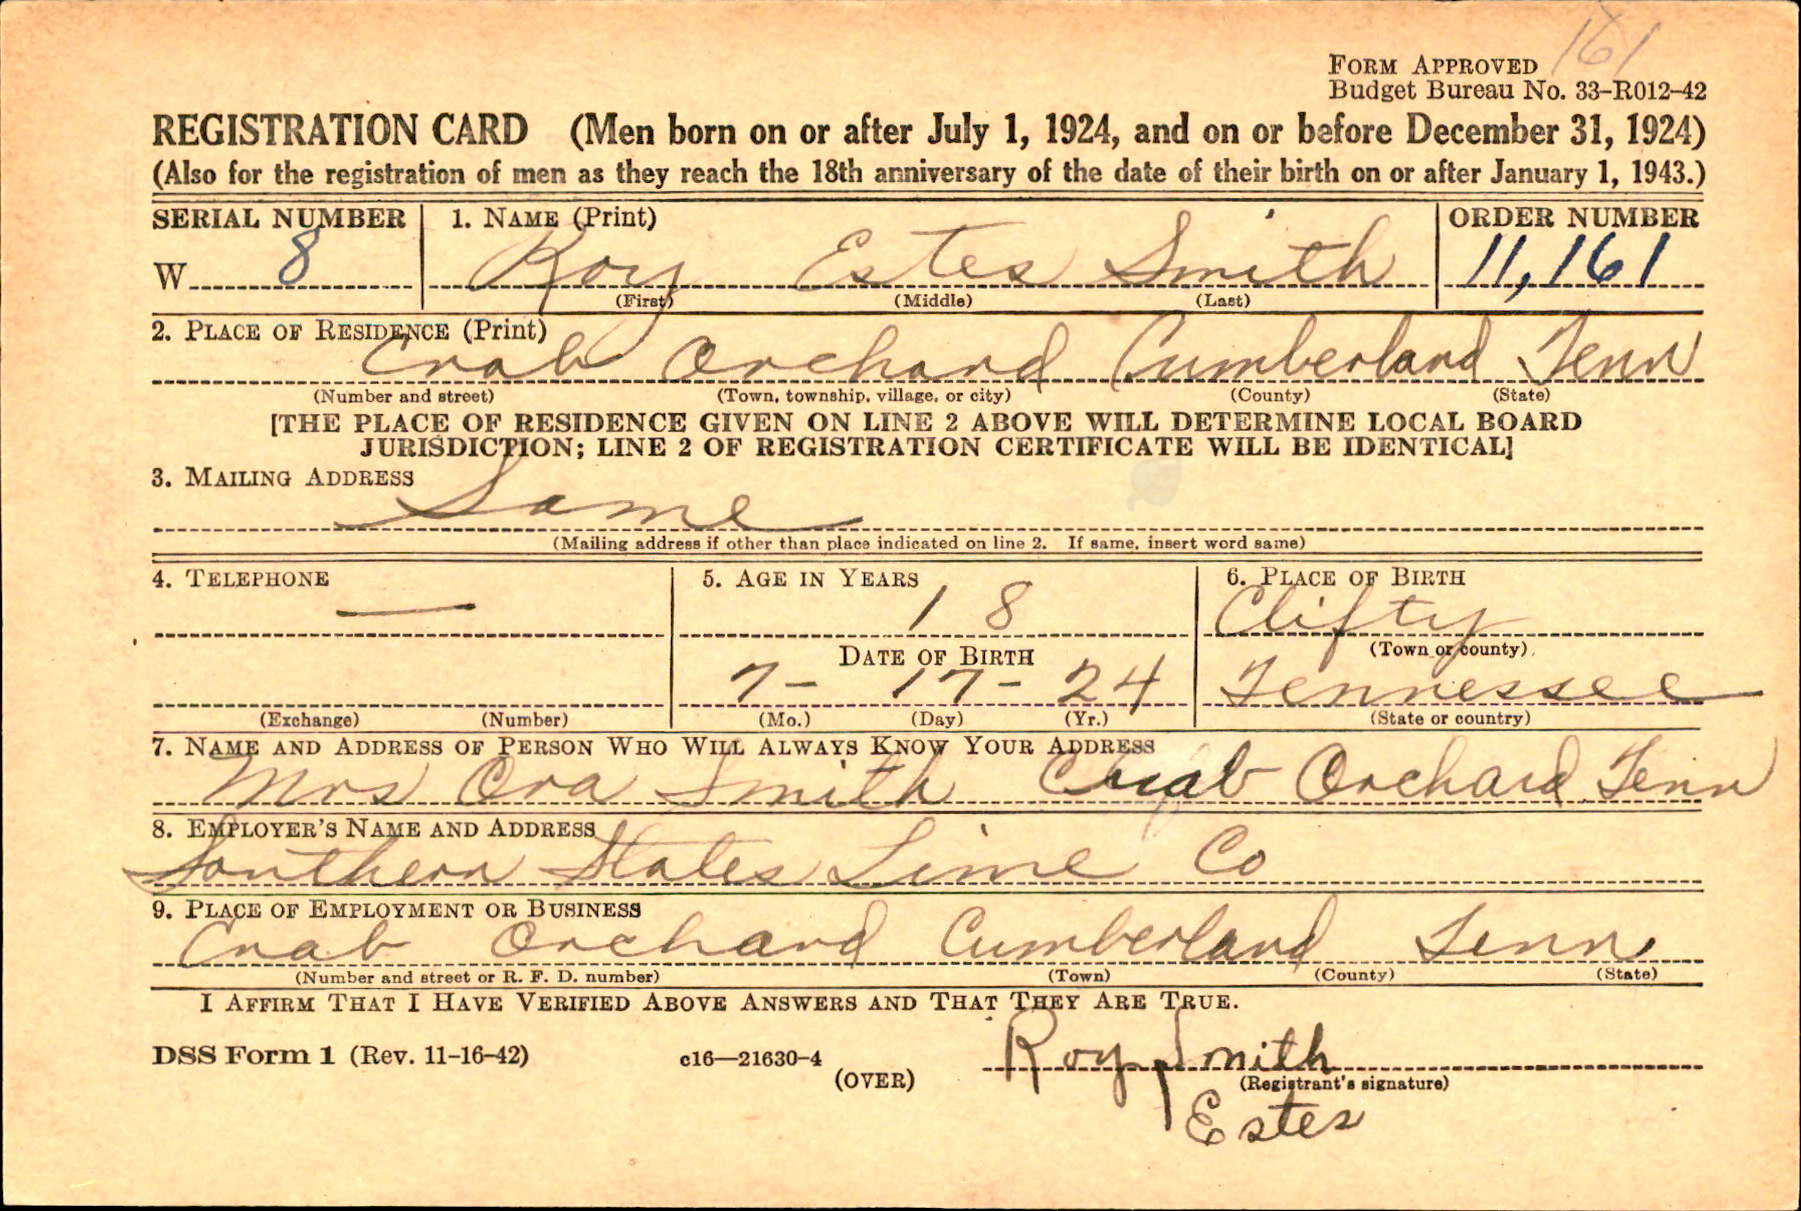 161
FORM APPROVED
Budget Bureau No. 33-R012-42
REGISTRATION CARD (Men born on or after July 1, 1924, and on or before December 31, 1924)
(Also for the registration of men as they reach the 18th anniversary of the date of their birth on or after January 1, 1943.)
SERIAL NUMBER 1. NAME (Print) ORDER NUMBER
W 8 Roy Estes Smith 11,161
(First) (Middle) (Last)
2. PLACE OF RESIDENCE (Print)
Crab Orchard Cumberland Tenn
(Number and street) (Town, township, village, or city) (County) (State)
[THE PLACE OF RESIDENCE GIVEN ON LINE 2 ABOVE WILL DETERMINE LOCAL BOARD
JURISDICTION; LINE 2 OF REGISTRATION CERTIFICATE WILL BE IDENTICAL]
3. MAILING ADDRESS
Same
(Mailing address if other than place indicated on line 2. If same, insert word same)
4. TELEPHONE 5. AGE IN YEARS 6. PLACE OF BIRTH
— 18 Clifty
DATE OF BIRTH (Town or county)
7-17-24 Tennessee
(Exchange) (Number) (Mo.) (Day) (Yr.) (State or country)
7. NAME AND ADDRESS OF PERSON WHO WILL ALWAYS KNOW YOUR ADDRESS
Mrs Ora Smith Crab Orchard Tenn
8. EMPLOYER'S NAME AND ADDRESS
Southern States Lime Co
9. PLACE OF EMPLOYMENT OR BUSINESS
Crab Orchard Cumberland Tenn
(Number and street or R. F. D. number) (Town) (County) (State)
I AFFIRM THAT I HAVE VERIFIED ABOVE ANSWERS AND THAT THEY ARE TRUE.
DSS Form 1 (Rev. 11-16-42) c16—21630-4 Roy Smith
(OVER) (Registrant's signature)
Estes